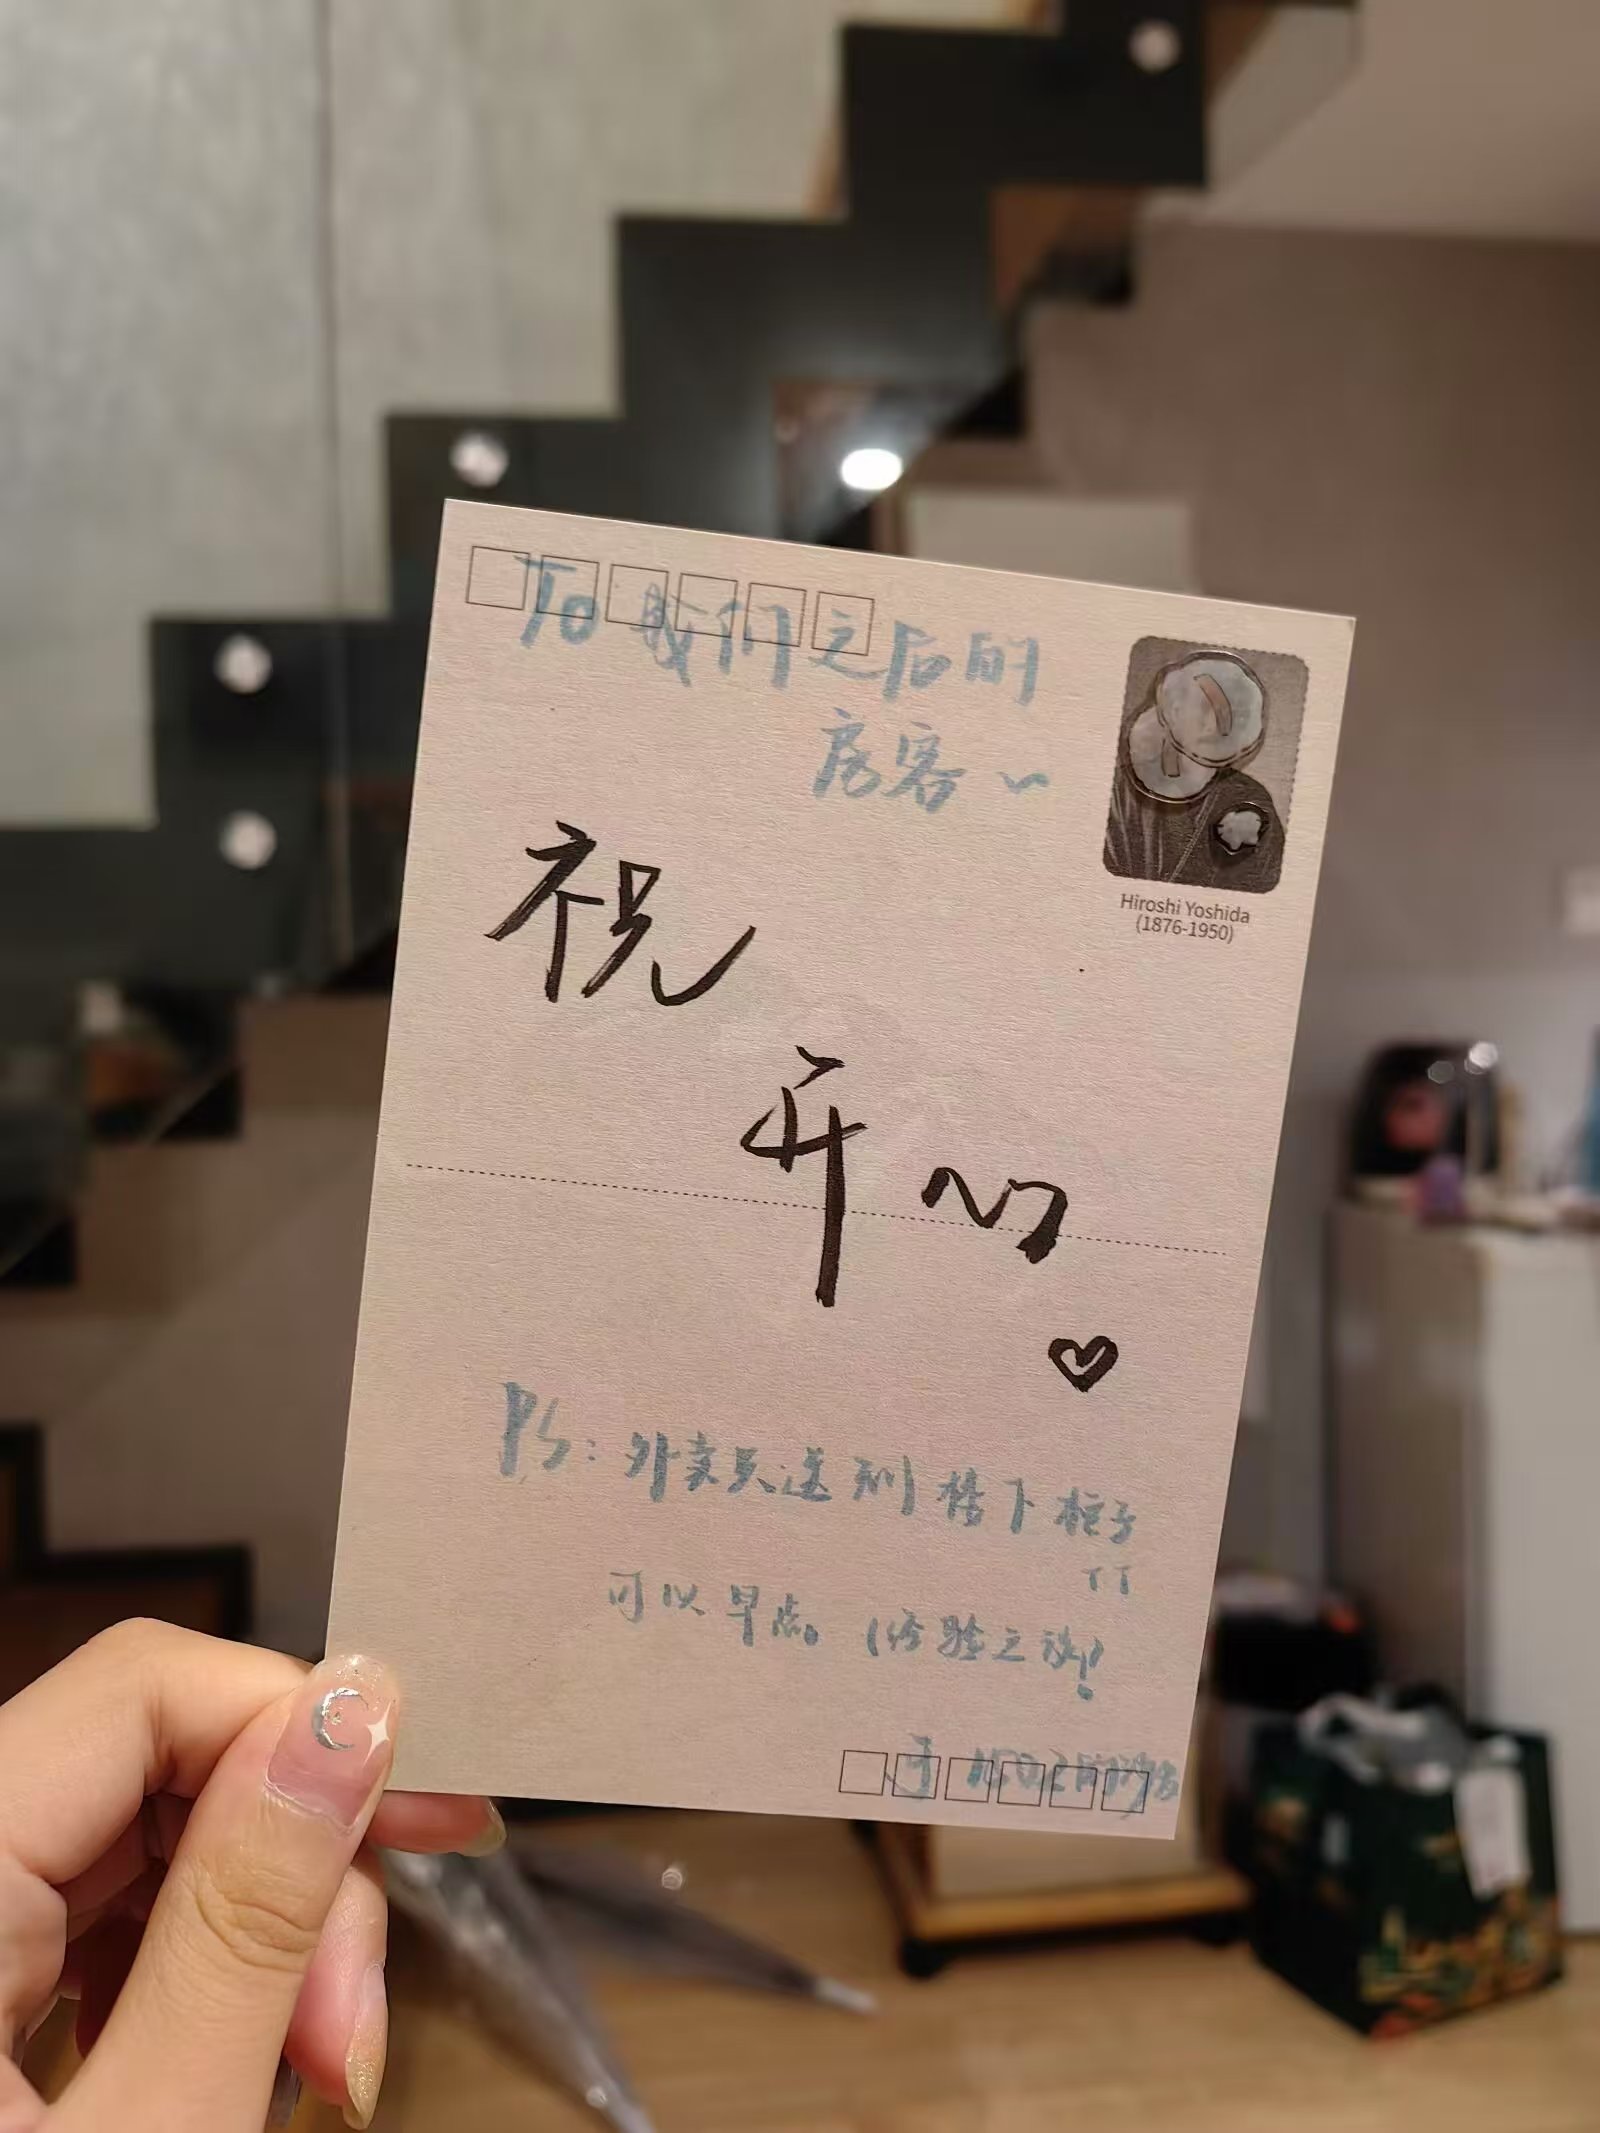 To 我们之后的
房客~
Hiroshi Yoshida
(1876-1950)
祝
开心
PS：外卖只送到楼下柜子
TT
可以早点（经验之谈）！